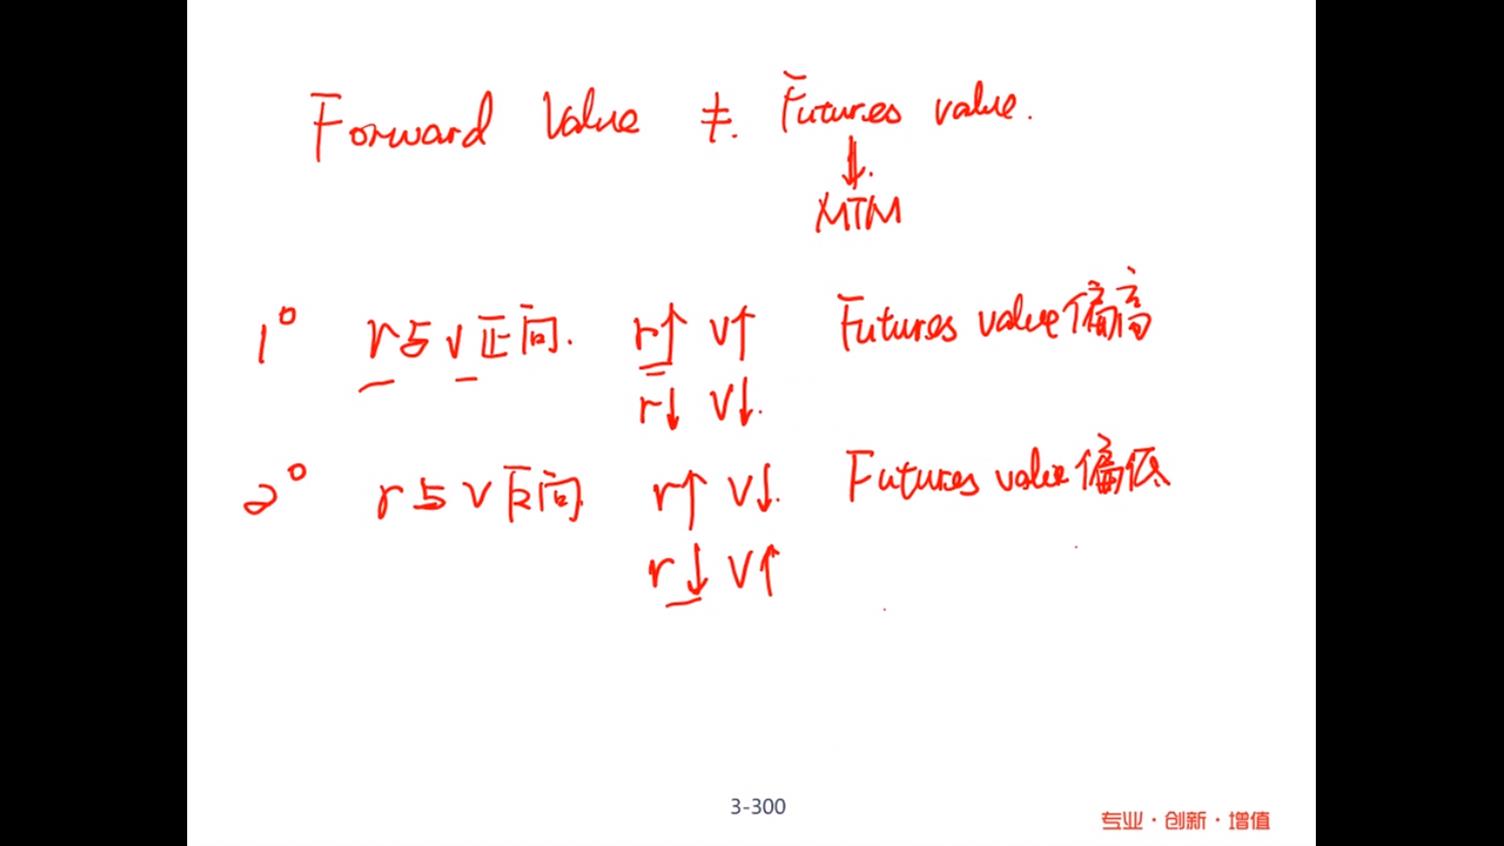 Forward Value ≠. Futures value.
↓.
MTM
1° r与v正向. r↑ v↑ Futures value偏高
r↓ v↓.
2° r与v反向. r↑ v↓. Futures value偏低
r↓ v↑
3-300
专业·创新·增值